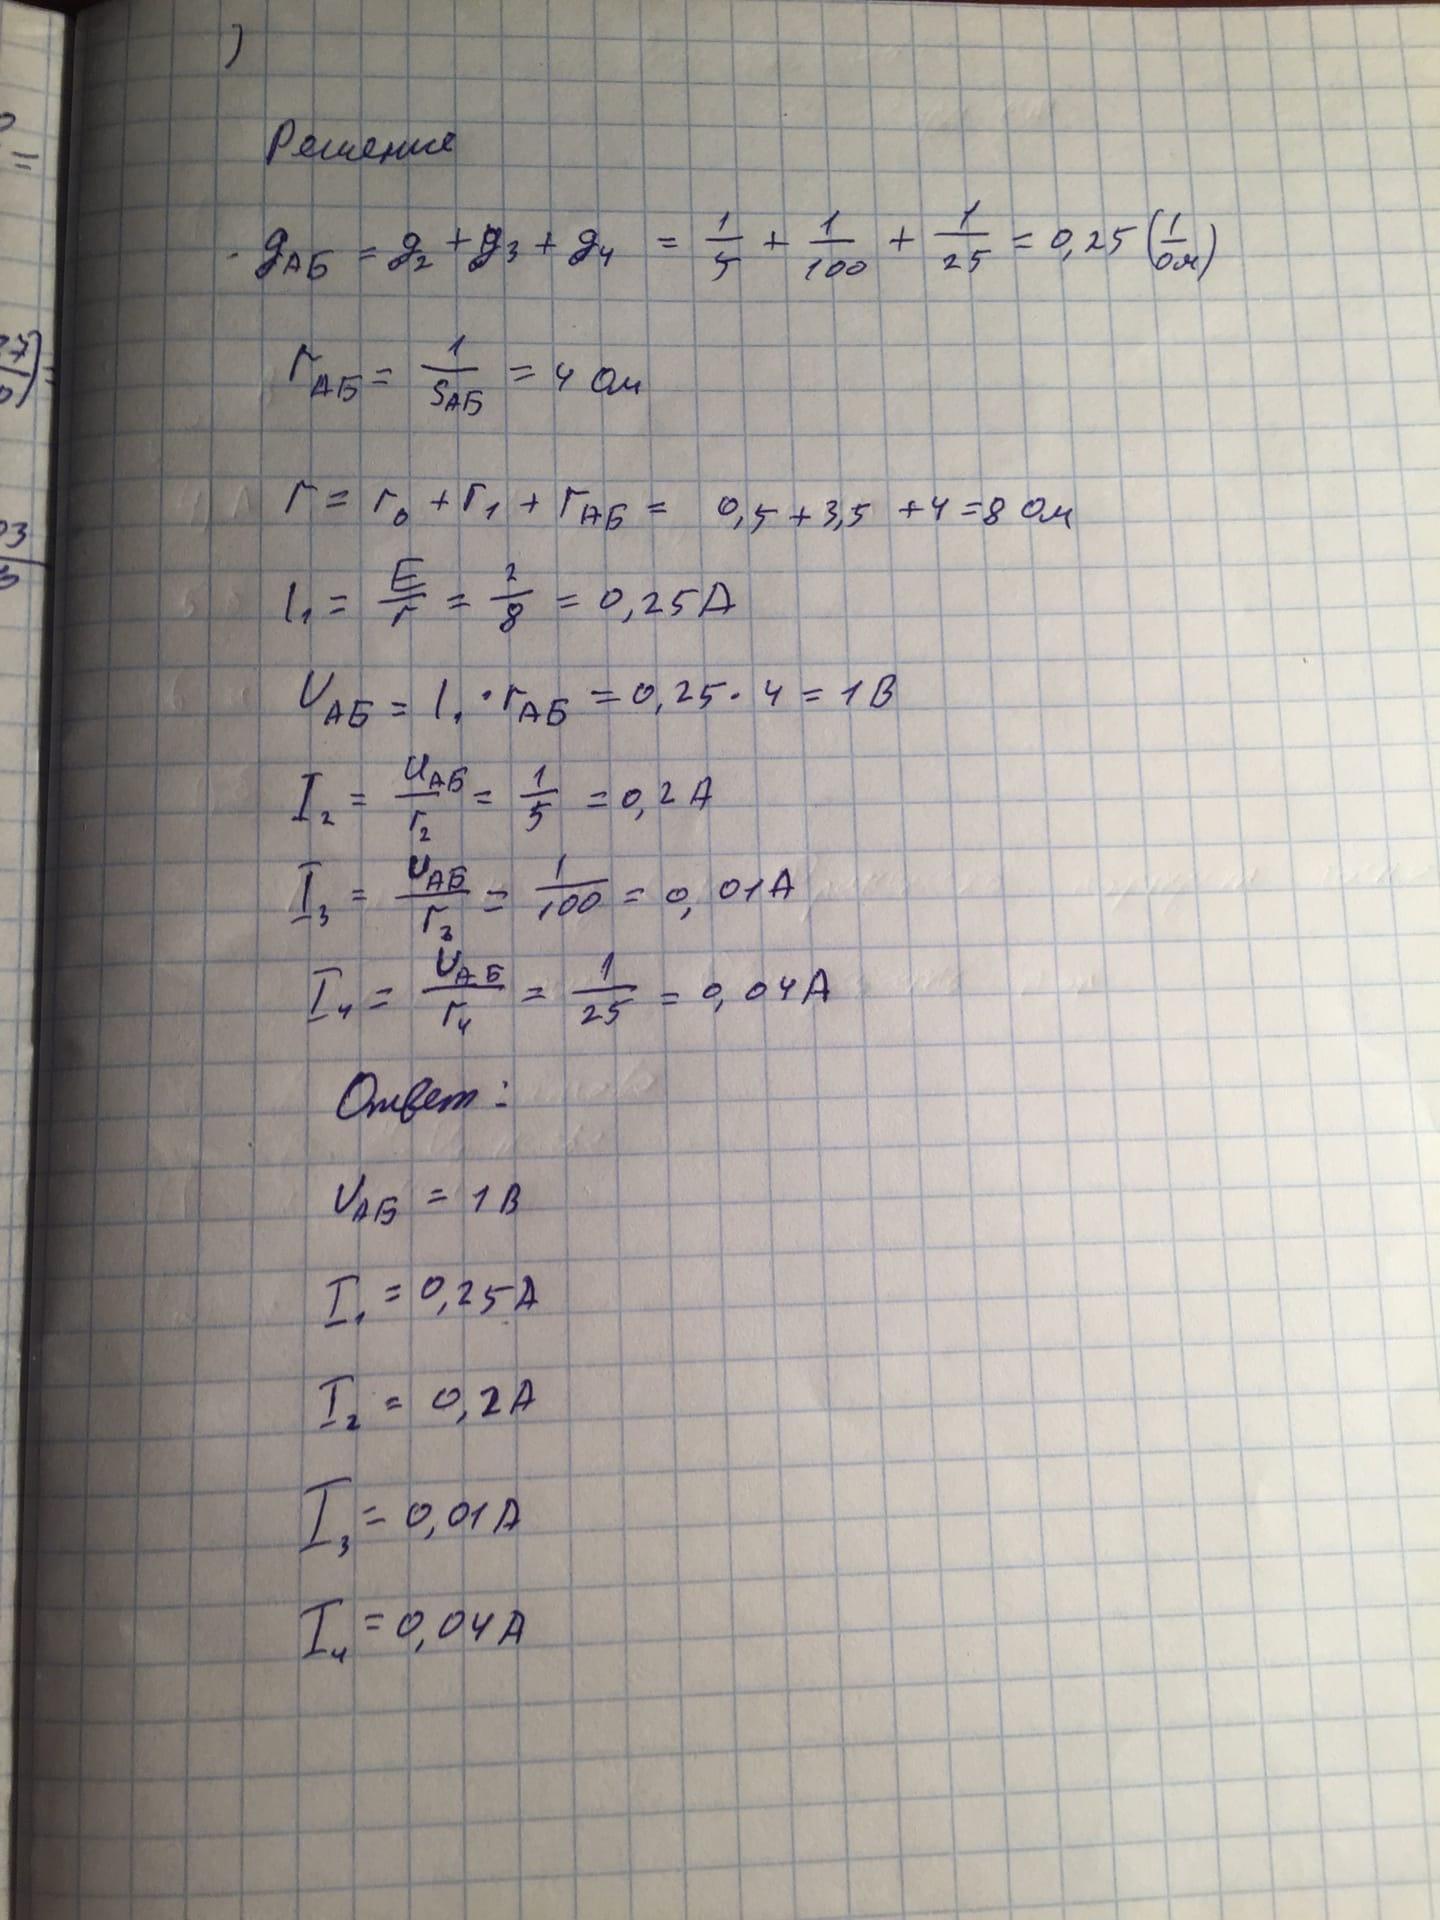 )
Решение
g_АБ = g_2 + g_3 + g_4 = 1/5 + 1/100 + 1/25 = 0,25 (1/ом)
r_АБ = 1/S_АБ = 4 Ом
r = r_0 + r_1 + r_АБ = 0,5 + 3,5 + 4 = 8 Ом
I_1 = E/r = 2/8 = 0,25 А
U_АБ = I_1 · r_АБ = 0,25 · 4 = 1 В
I_2 = U_АБ/r_2 = 1/5 = 0,2 А
I_3 = U_АБ/r_3 = 1/100 = 0,01 А
I_4 = U_АБ/r_4 = 1/25 = 0,04 А
Ответ:
U_АБ = 1 В
I_1 = 0,25 А
I_2 = 0,2 А
I_3 = 0,01 А
I_4 = 0,04 А